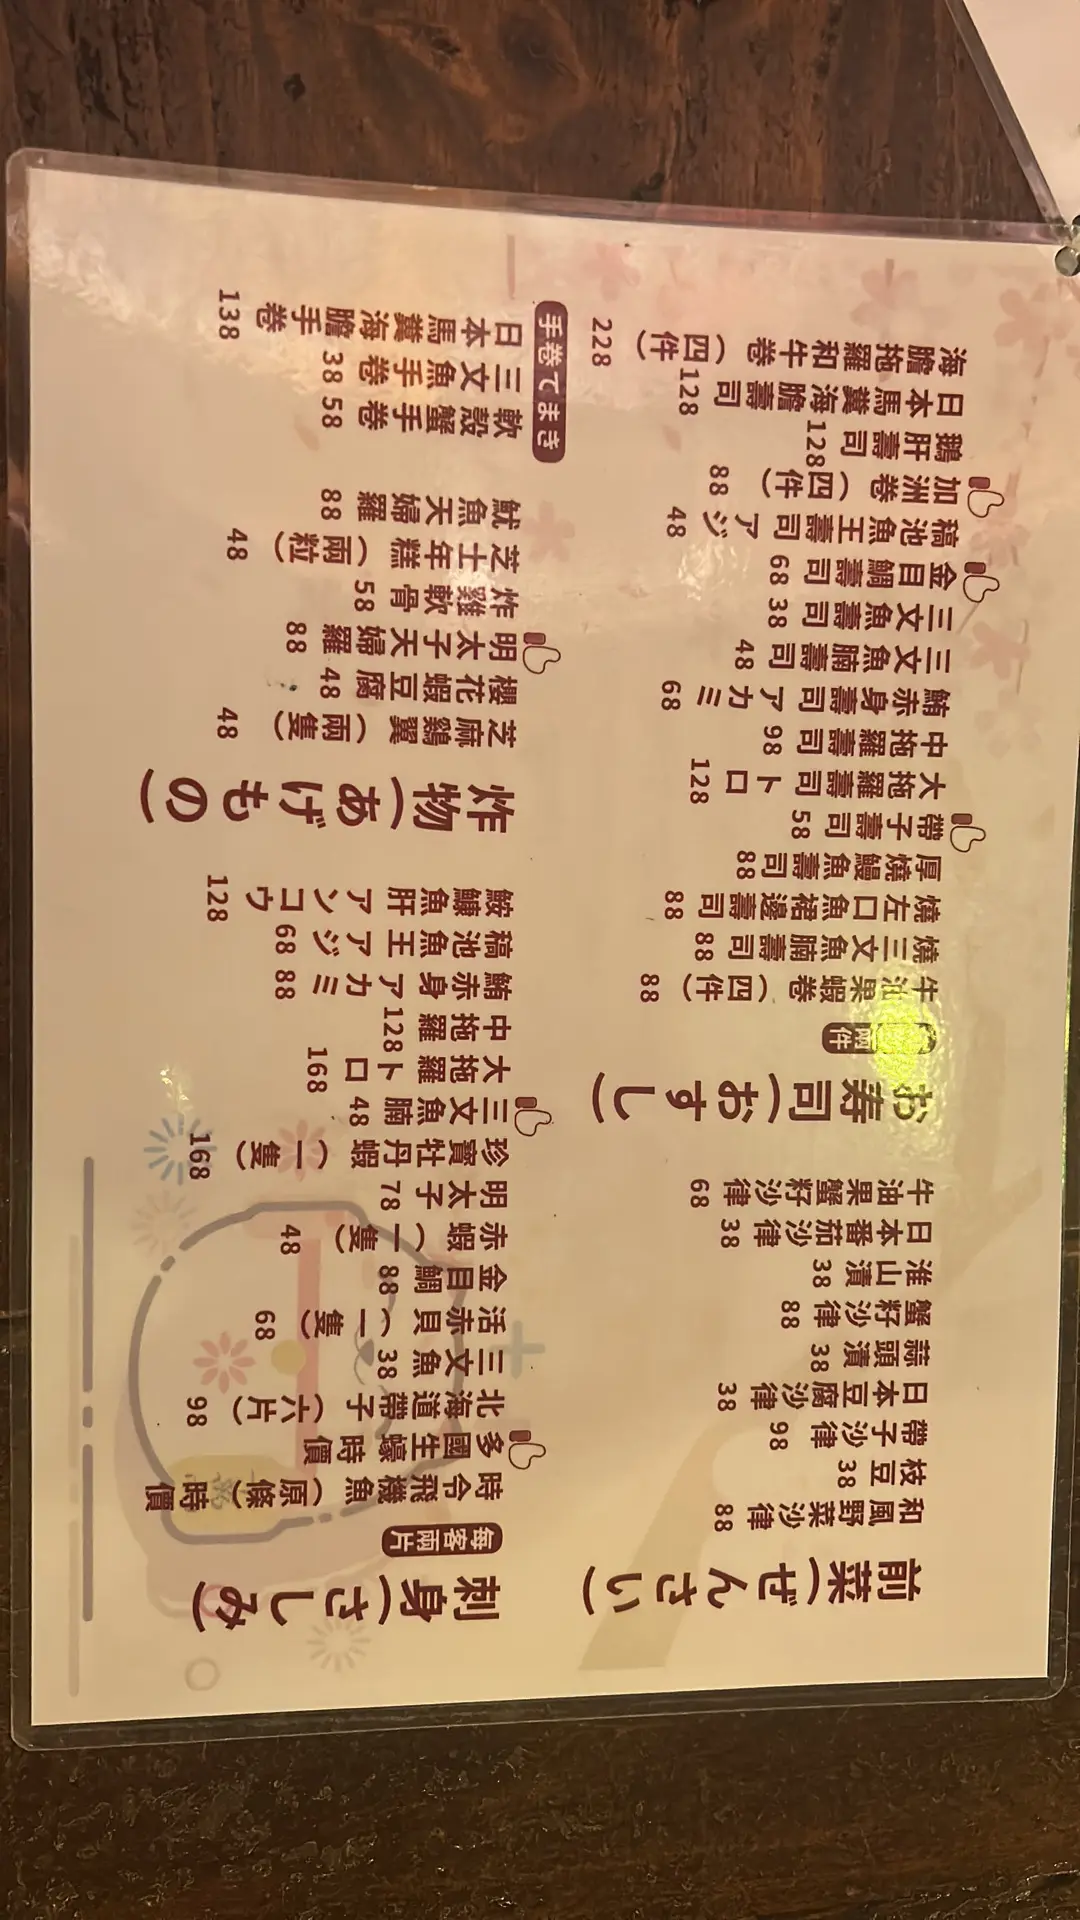 前菜(ぜんさい)
和風野菜沙律 88
枝豆 38
帶子沙律 98
日本豆腐沙律 38
蒜頭漬 38
蟹籽沙律 88
淮山漬 38
日本番茄沙律 38
牛油果蟹籽沙律 68
お寿司(おすし)
兩件
牛油果蝦卷（四件） 88
燒三文魚腩壽司 88
燒左口魚裙邊壽司 88
厚燒鰻魚壽司 88
帶子壽司 58
大拖羅壽司 トロ 128
中拖羅壽司 98
鮪赤身壽司 アカミ 68
三文魚腩壽司 48
三文魚壽司 38
金目鯛壽司 68
稿池魚王壽司 アジ 48
加洲卷（四件） 88
鵝肝壽司 128
日本馬糞海膽壽司 128
海膽拖羅和牛卷（四件） 228
刺身(さしみ)
每客兩片
時令飛機魚（原條） 時價
多國生蠔 時價
北海道帶子（六片） 98
三文魚 38
活赤貝（一隻） 68
金目鯛 88
赤蝦（一隻） 48
明太子 78
珍寶牡丹蝦（一隻） 168
三文魚腩 48
大拖羅 トロ 168
中拖羅 128
鮪赤身 アカミ 88
稿池魚王 アジ 68
鮟鱇魚肝 アンコウ 128
炸物(あげもの)
芝麻鷄翼（兩隻） 48
櫻花蝦豆腐 48
明太子天婦羅 88
炸雞軟骨 58
芝士年糕（兩粒） 48
魷魚天婦羅 88
手卷てまき
軟殼蟹手卷 58
三文魚手卷 38
日本馬糞海膽手卷 138